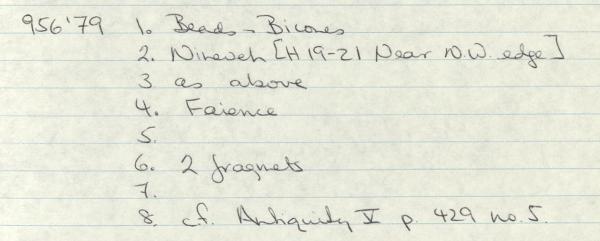 956'79 1. Beads - Bicones
2. Nineveh [H 19-21 Near N.W. edge]
3 as above
4. Faience
5.
6. 2 fragnets
7.
8. cf. Antiquity V p. 429 no. 5.